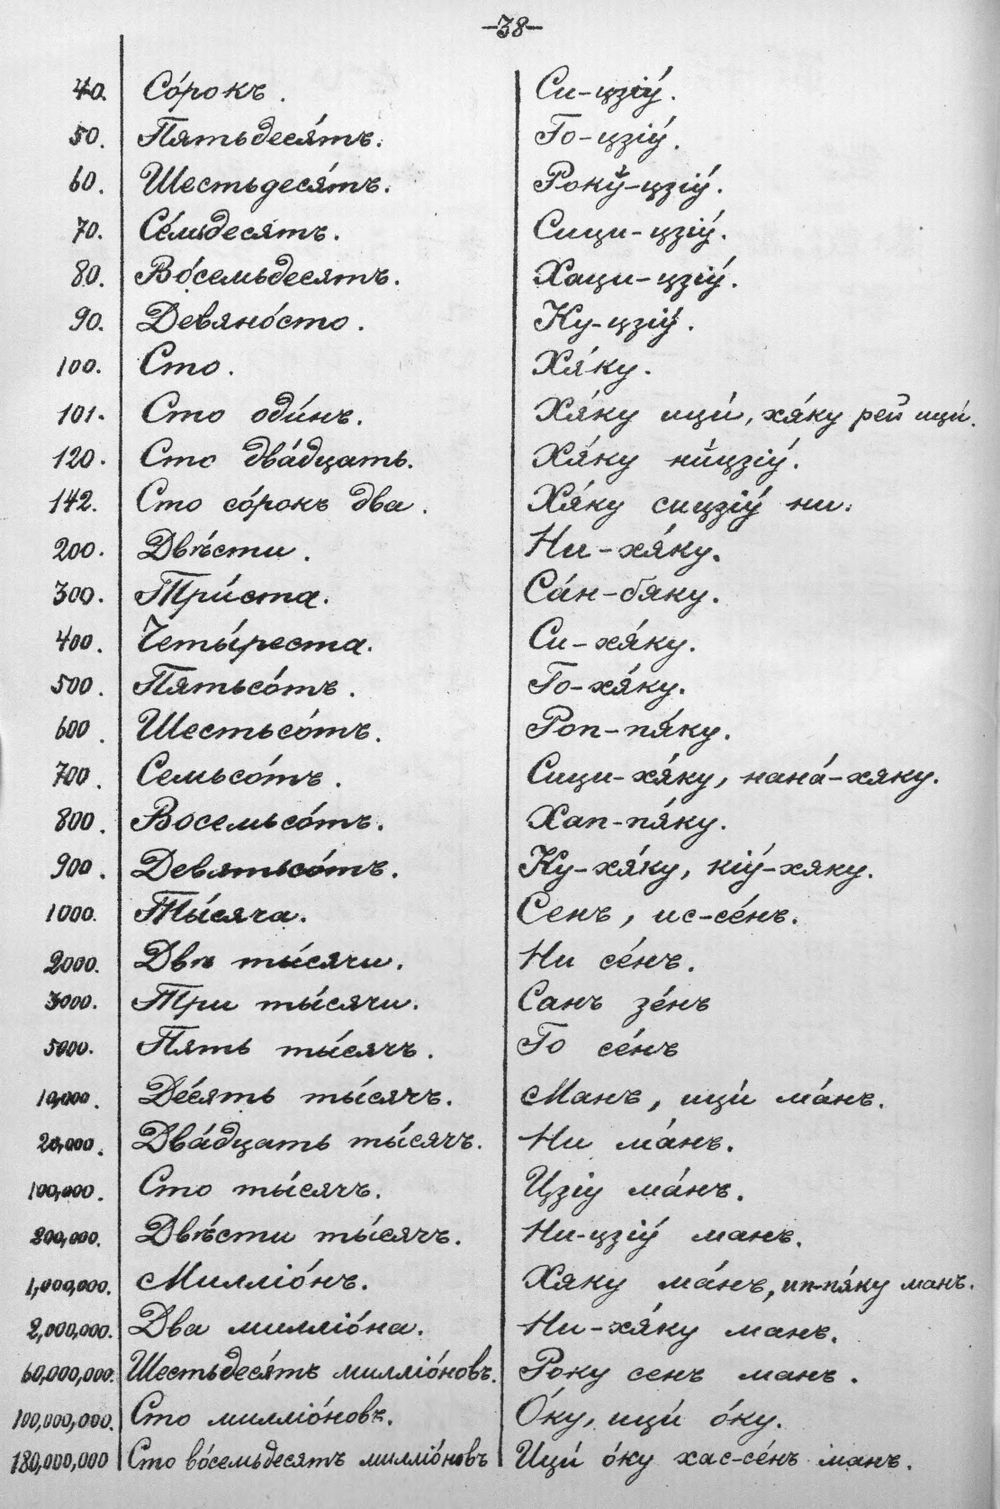 -38-
40. Со́рокъ. Си-цзіу́.
50. Пятьдеся́тъ. Го-цзіу́.
60. Шестьдеся́тъ. Рокў-цзіу́.
70. Се́мьдесятъ. Сици-цзіу́.
80. Во́семьдесятъ. Хаци-цзіу́.
90. Девяно́сто. Ку-цзіу́.
100. Сто. Хя́ку.
101. Сто оди́нъ. Хя́ку ици́, хя́ку рей ици́.
120. Сто два́дцать. Хя́ку ни́цзіу́.
142. Сто со́рокъ два. Хя́ку сицзіу́ ни.
200. Двѣ́сти. Ни-хя́ку.
300. Три́ста. Са́н-бяку.
400. Четы́реста. Си-хя́ку.
500. Пятьсо́тъ. Го-хя́ку.
600. Шестьсо́тъ. Роп-пя́ку.
700. Семьсо́тъ. Сици-хя́ку, нана́-хяку.
800. Восемьсо́тъ. Хап-пя́ку.
900. Девятьсо́тъ. Ку-хя́ку, кіу́-хяку.
1000. Ты́сяча. Сенъ, ис-се́нъ.
2000. Двѣ ты́сячи. Ни се́нъ.
3000. Три ты́сячи. Санъ зе́нъ
5000. Пять ты́сячъ. Го се́нъ
10,000. Де́сять ты́сячъ. Манъ, ици́ ма́нъ.
20,000. Два́дцать ты́сячъ. Ни ма́нъ.
100,000. Сто ты́сячъ. Цзіу ма́нъ.
200,000. Двѣ́сти ты́сячъ. Ни-цзіу́ манъ.
1,000,000. Милліо́нъ. Хяку ма́нъ, ип-пя́ку манъ.
2,000,000. Два милліо́на. Ни-хя́ку манъ.
60,000,000. Шестьдеся́тъ милліо́новъ. Року сенъ манъ.
100,000,000. Сто милліо́новъ. О́ку, ици́ о́ку.
180,000,000 Сто во́семьдесятъ милліо́новъ Ици́ о́ку хас-се́нъ манъ.